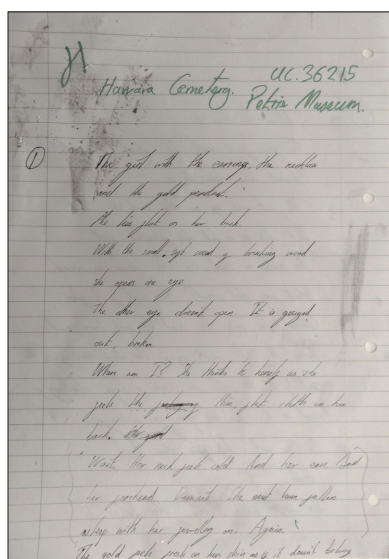 H
Hawara Cemetery. UC.36215
Petrie Museum.
①
The girl with the earrings, the necklace
and the gold pendant.
She lies flat on her back.
With the small, soft sound of breaking wood
she opens one eye.
The other eye doesn't open. It is gouged
out, broken.
Where am I? She thinks to herself as she
feels the thin, flat cloth on her
back.
Wait. Her neck feels cold. And her ears. And
her forehead. She must have fallen
asleep with her jewellery on. Again.
The gold feels fresh on her skin as if it doesn't belong